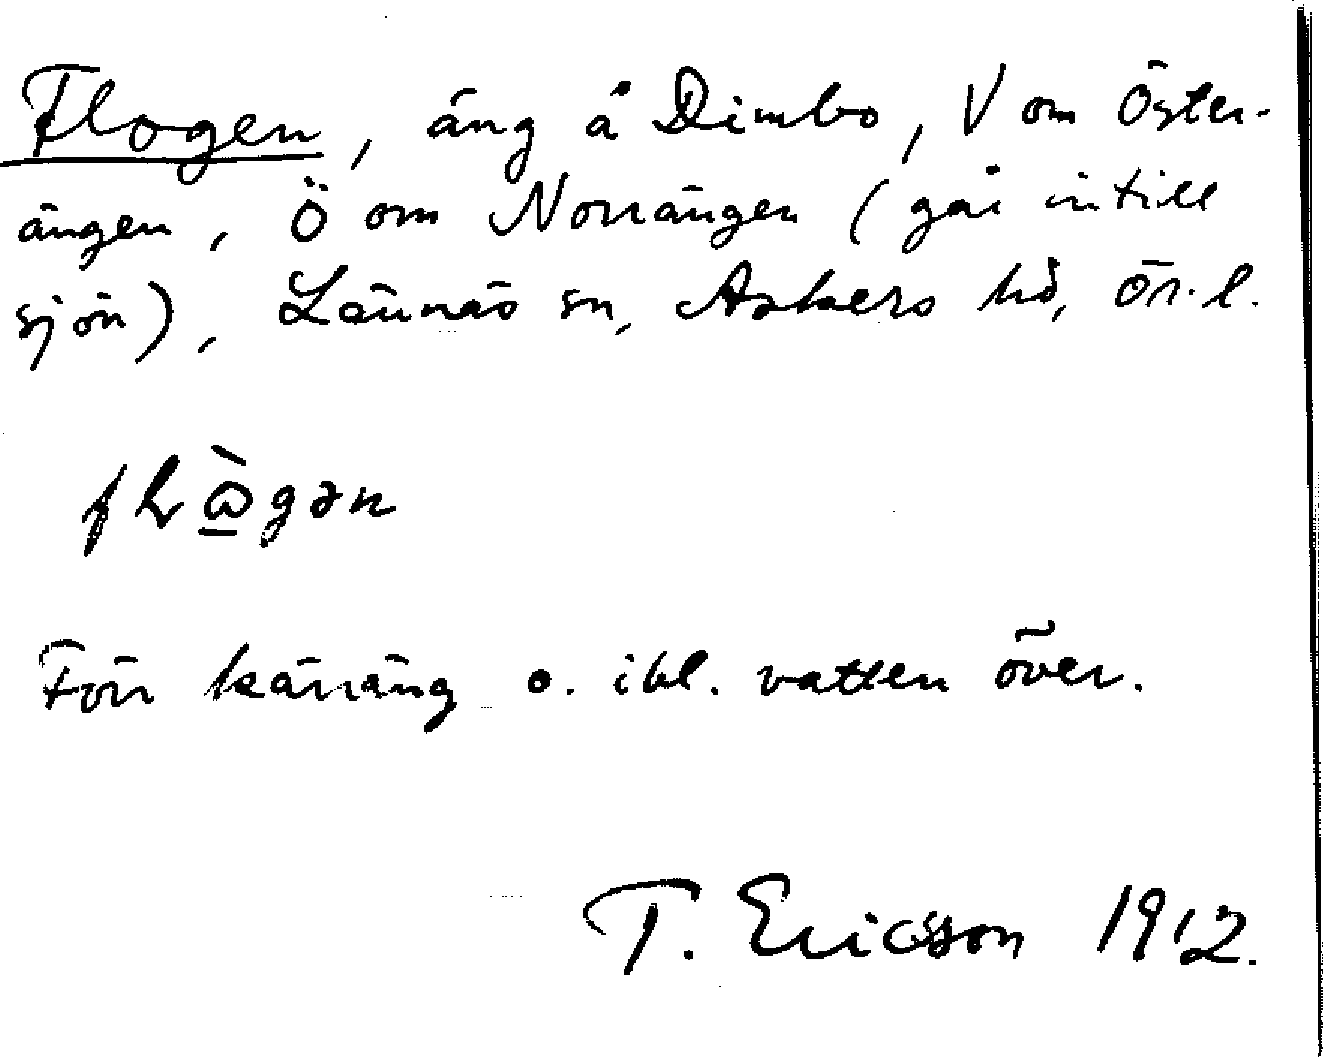 Flogen, äng å Dimbo, V om Öster-
ängen, Ö om Norrängen (går intill
sjön), Lännäs sn, Askers hd, Ör. l.
Förr kärräng o. ibl. vatten över.
T. Ericsson 1912.